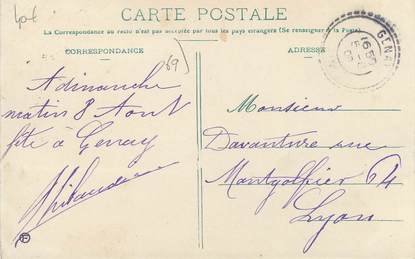 CARTE POSTALE
La Correspondance au recto n'est pas acceptée par tous les pays étrangers (Se renseigner à la Poste)
CORRESPONDANCE
ADRESSE
69
GENAY
A dimanche
matin 8 Aout
fête à Genay
Monsieur
Davanture rue
Montgolfier 64
Lyon